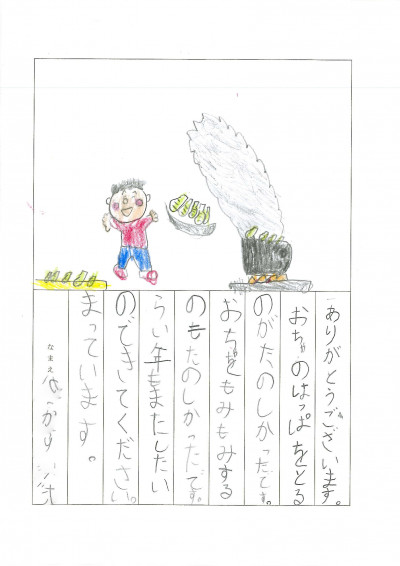 ありがとうございます。
おちゃのはっぱをとる
のがたのしかったです。
おちゃをもみもみする
のもたのしかったです。
らい年もまたしたい
のできてください。
まっています。
なまえ